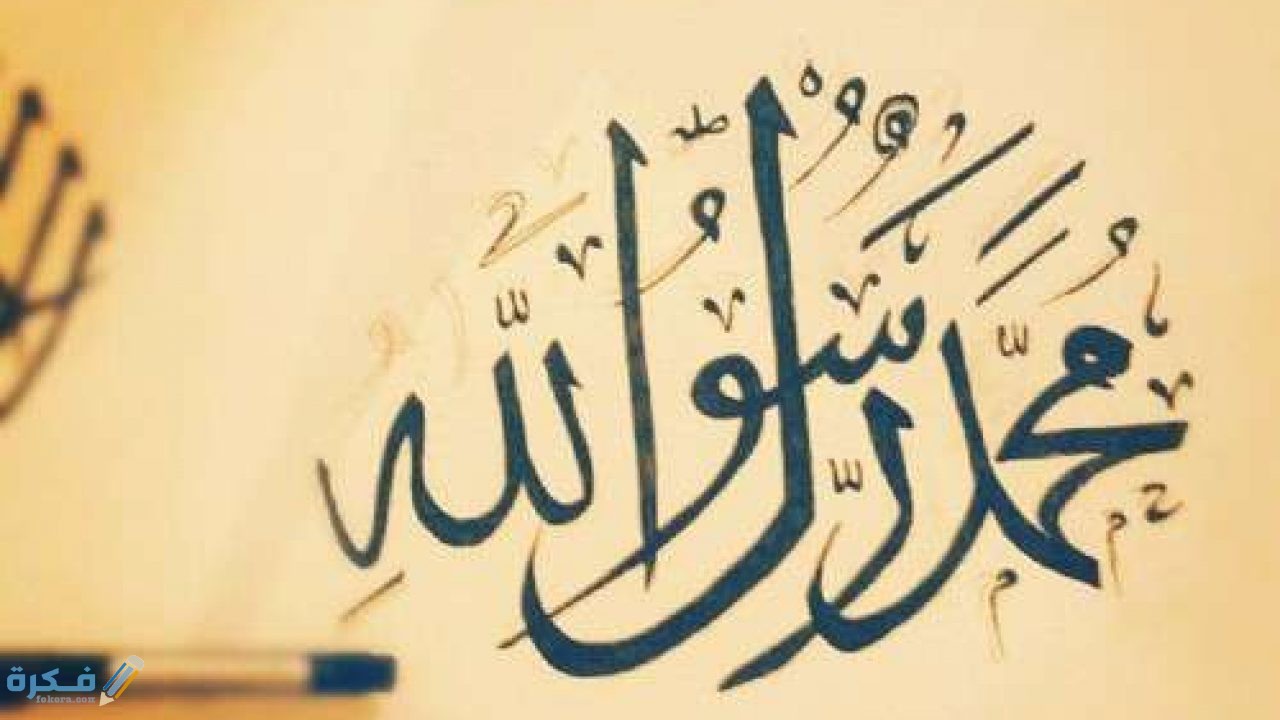 مُحَمَّدٌ رَّسُوْلُ اللّٰهِ
فكرة
fokera.com